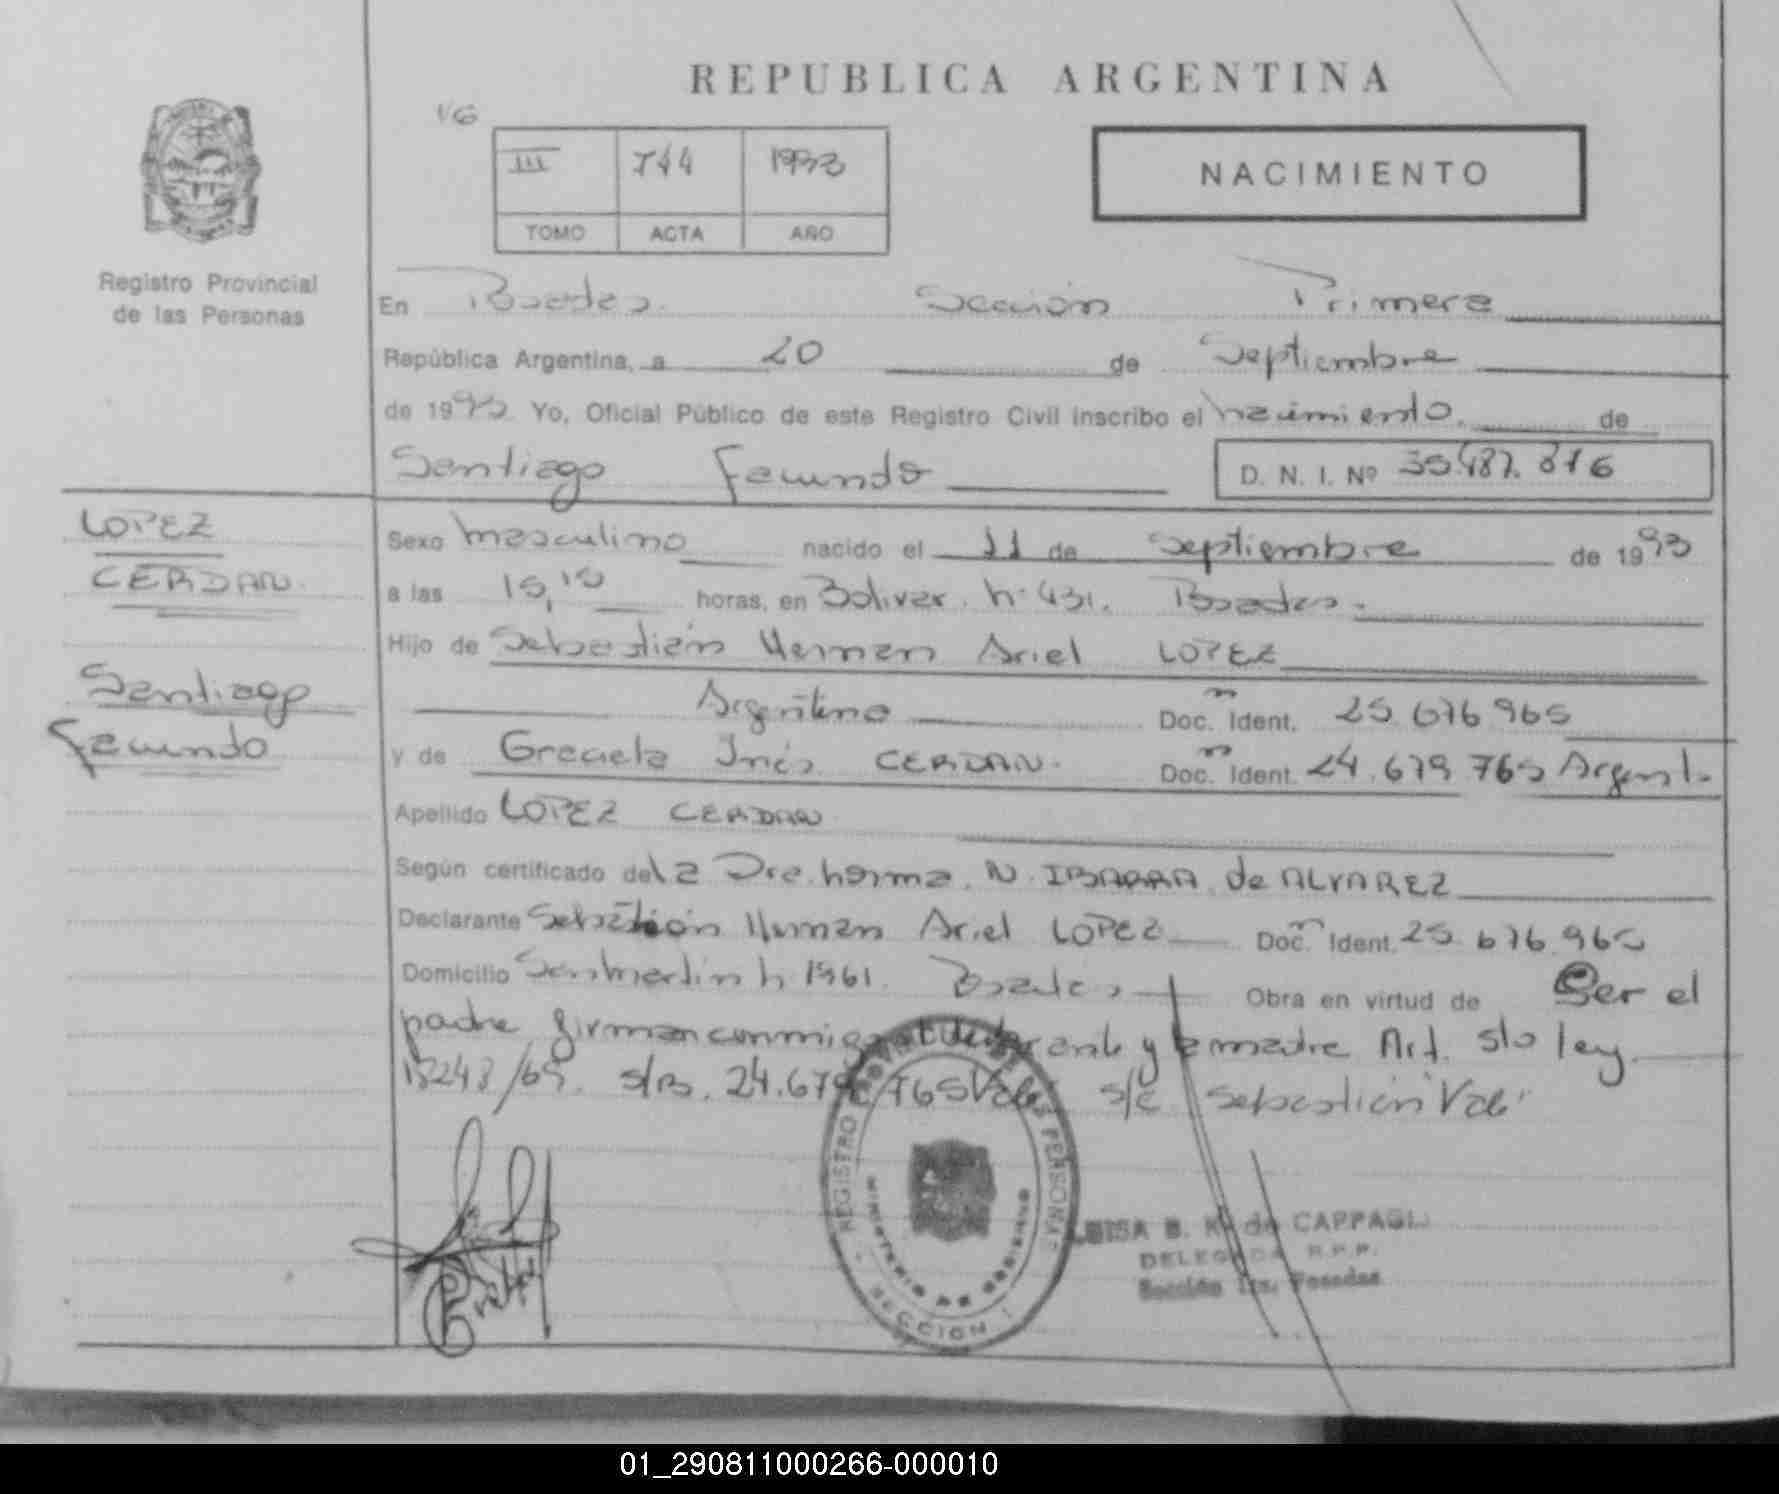 REPUBLICA ARGENTINA
III 744 1993
TOMO ACTA AÑO
NACIMIENTO
Registro Provincial
de las Personas
En Posadas. Sección Primera
República Argentina, a 20 de Septiembre
de 1993 Yo, Oficial Público de este Registro Civil inscribo el nacimiento. de
Santiago Facundo D. N. I. Nº 35.487.876
LOPEZ
CERDAN.
Santiago
Facundo
Sexo masculino nacido el 11 de septiembre de 1993
a las 15,10 horas, en Bolivar. Nº 431. Posadas.
Hijo de Sebastián Hernan Ariel LOPEZ
Argentino Doc. Ident. 25 676 965
y de Graciela Inés CERDAN. Doc. Ident. 24.679 765 Argent.
Apellido LOPEZ CERDAN
Según certificado de la Dra. Norma. N. IBARRA de ALVAREZ
Declarante Sebastión Hernan Ariel LOPEZ Doc. Ident. 25.676.965
Domicilio San Martin N 1961. Posadas Obra en virtud de Ser el
padre firman conmigo el declarante y la madre Art. 5to ley
18248/69. s/B. 24.679 765 Vale s/e Sebastián Vale
REGISTRO PERSONAS
MINISTERIO DE GOBIERNO
SECCION
LUISA B. K. de CAPPAGLI
DELEGADA R.P.P.
Sección 1ra. Posadas
01_290811000266-000010